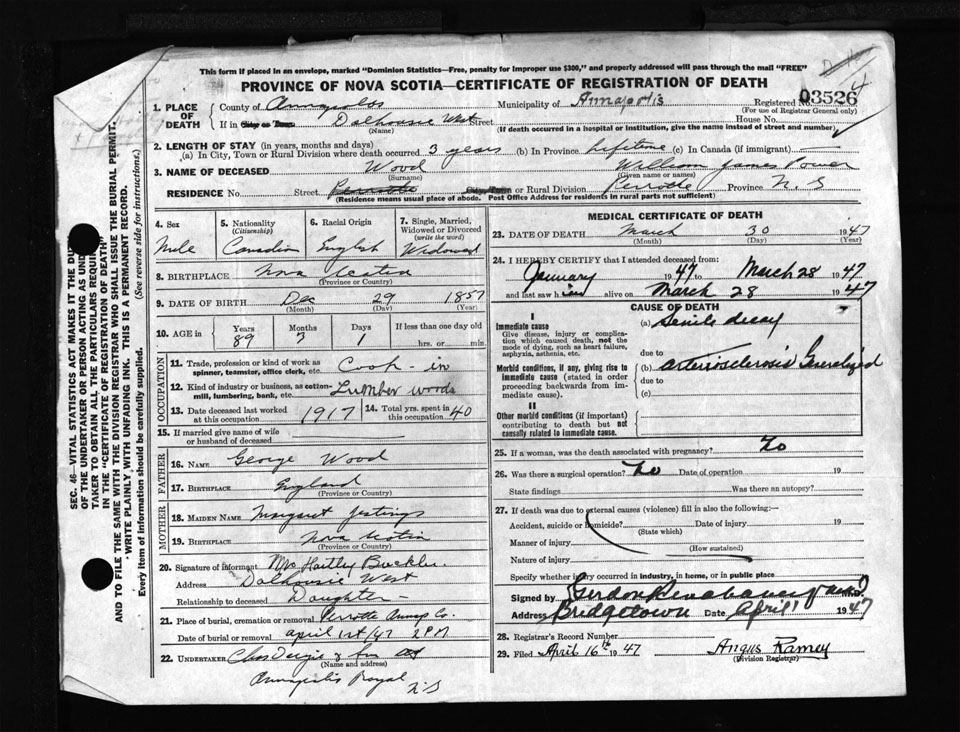 This form if placed in an envelope, marked "Dominion Statistics—Free, penalty for improper use $300," and properly addressed will pass through the mail "FREE"
PROVINCE OF NOVA SCOTIA—CERTIFICATE OF REGISTRATION OF DEATH
03526
1. PLACE OF DEATH
County of Annapolis Municipality of Annapolis Registered No.
(For use of Registrar General only)
If in City or Town Dalhousie West Street House No.
(Name) (If death occurred in a hospital or institution, give the name instead of street and number)
2. LENGTH OF STAY (in years, months and days)
(a) In City, Town or Rural Division where death occurred 3 years (b) In Province Lifetime (c) In Canada (if immigrant) —
3. NAME OF DECEASED Wood William James Power
(Surname) (Given name or names)
RESIDENCE No. Street Perrotte City, Town or Rural Division Perrotte Province N. S
(Residence means usual place of abode. Post Office Address for residents in rural parts not sufficient)
4. Sex Male
5. Nationality (Citizenship) Canadian
6. Racial Origin English
7. Single, Married, Widowed or Divorced (write the word) Widowed
8. BIRTHPLACE Nova Scotia
(Province or Country)
9. DATE OF BIRTH Dec 29 1857
(Month) (Day) (Year)
10. AGE in Years 89 Months 3 Days 1 If less than one day old hrs. or min.
OCCUPATION
11. Trade, profession or kind of work as spinner, teamster, office clerk, etc. Cook - in
12. Kind of industry or business, as cotton-mill, lumbering, bank, etc. Lumber woods
13. Date deceased last worked at this occupation 1917
14. Total yrs. spent in this occupation 40
15. If married give name of wife or husband of deceased
FATHER
16. NAME George Wood
17. BIRTHPLACE England
(Province or Country)
MOTHER
18. MAIDEN NAME Margaret
19. BIRTHPLACE Nova Scotia
(Province or Country)
20. Signature of informant Mrs Hartley Buckler
Address Dalhousie West
Relationship to deceased Daughter -
21. Place of burial, cremation or removal Perrotte Annap Co.
Date of burial or removal april 1st/47 2 PM
22. UNDERTAKER Chas
(Name and address)
Annapolis Royal
N.S
MEDICAL CERTIFICATE OF DEATH
23. DATE OF DEATH March 30 1947
(Month) (Day) (Year)
24. I HEREBY CERTIFY that I attended deceased from:
January 1947 to March 28 1947
and last saw him alive on March 28 1947
CAUSE OF DEATH
I
Immediate cause
Give disease, injury or complication which caused death, not the mode of dying, such as heart failure, asphyxia, asthenia, etc.
(a) Senile decay
due to
Morbid conditions, if any, giving rise to immediate cause (stated in order proceeding backwards from immediate cause).
(b) arteriosclerosis Generalized
due to
(c)
II
Other morbid conditions (if important) contributing to death but not causally related to immediate cause.
25. If a woman, was the death associated with pregnancy? No
26. Was there a surgical operation? No Date of operation 19
State findings Was there an autopsy?
27. If death was due to external causes (violence) fill in also the following:—
Accident, suicide or homicide? Date of injury 19
(State which)
Manner of injury
(How sustained)
Nature of injury
Specify whether injury occurred in industry, in home, or in public place
Signed by Gordon
Address Bridgetown Date April 1 1947
28. Registrar's Record Number
29. Filed April 16th 1947 Angus Ramey
(Division Registrar)
SEC. 46—VITAL STATISTICS ACT MAKES IT THE DU
OF THE UNDERTAKER OR PERSON ACTING AS UND
TAKER TO OBTAIN ALL THE PARTICULARS REQUIR
IN THE "CERTIFICATE OF REGISTRATION OF DEATH"
AND TO FILE THE SAME WITH THE DIVISION REGISTRAR WHO SHALL ISSUE THE BURIAL PERMIT.
WRITE PLAINLY, WITH UNFADING INK. THIS IS A PERMANENT RECORD.
Every item of information should be carefully supplied. (See reverse side for instructions.)